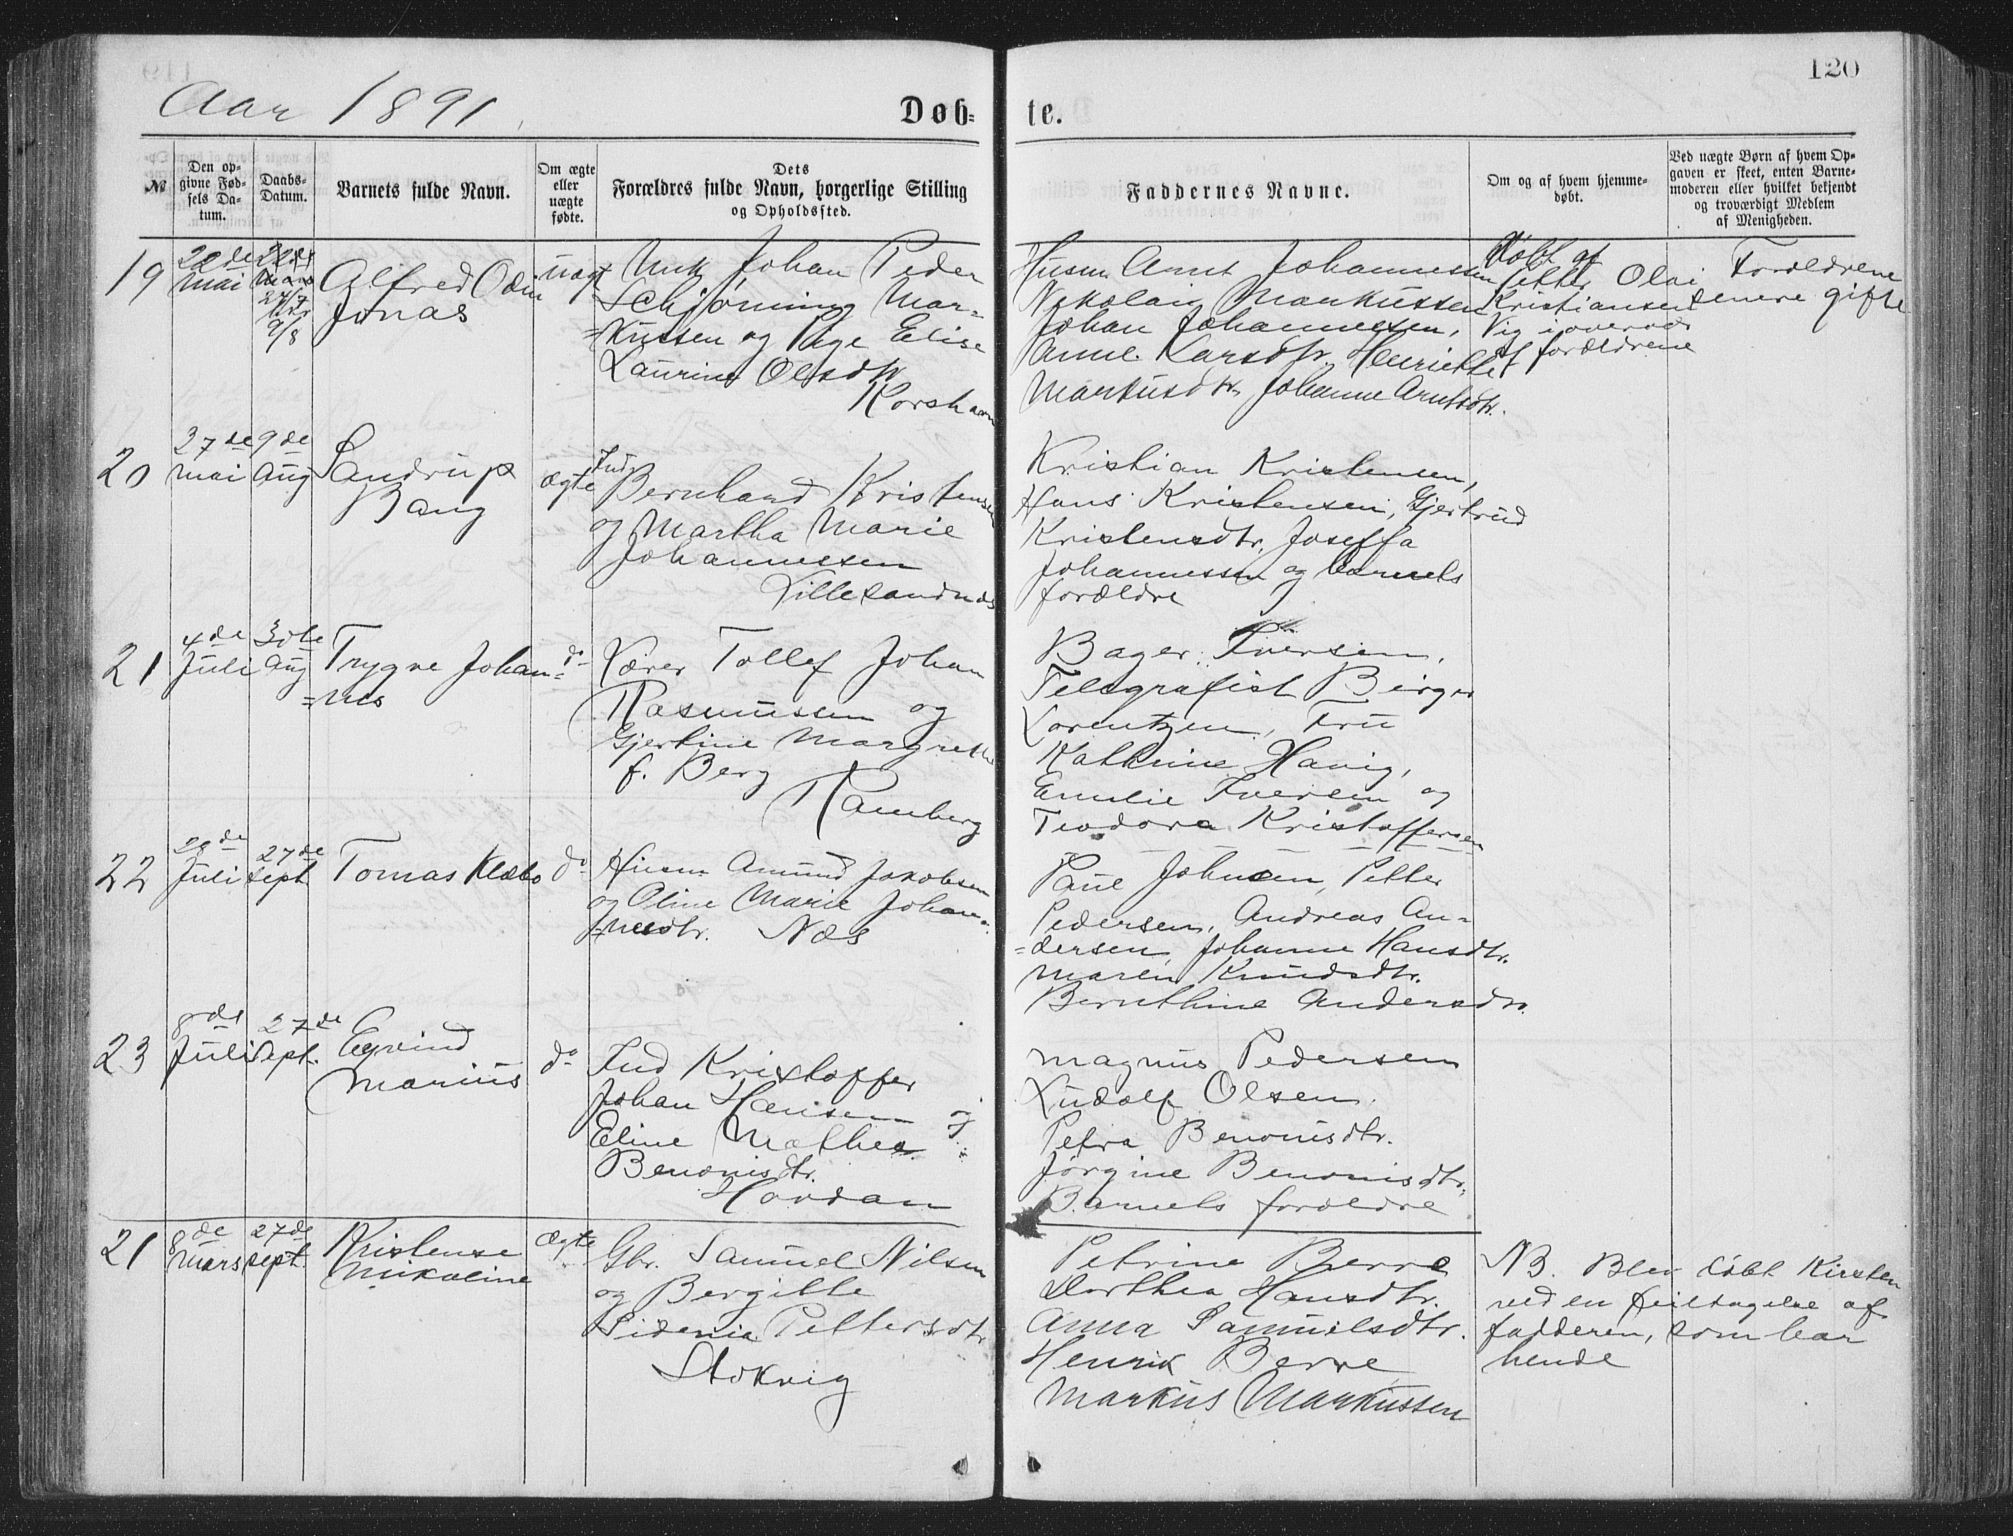 120
Aar 1891.
Døb-
te.
№
Den op-
givne Fød-
sels Da-
tum.
Daabs-
Datum.
Barnets fulde Navn.
Om ægte
eller
uægte
fødte.
Dets
Forældres fulde Navn, borgerlige Stilling
og Opholdssted.
Faddernes Navne.
Om og af hvem hjemme-
døbt.
Ved uægte Børn af hvem Op-
gaven er skeet, enten Barne-
moderen eller hvilket bekjendt
og troværdigt Medlem
af Menigheden.
19
22de
Mai
9/8
Alfred Odin
Jonas
uægt
Unk Johan Peder
Schjøning Mar-
=kussen og Pige Elise
Laurine Olsdtr
Korshavn
Husm Arnt Johannessen
Nikolai Markussen
Johan Johannessen,
Anne Larsdtr. Henriette
Markusdtr. Johanne Arntsdtr.
Døbt af
Petter Olai
Kristiansen
Vig i overvær
af forældrene
Forældrene
senere gifte
20
27de
Mai
9de
Aug
Sandrup
Bang
ægte
Ind
Bernhard Kristensen
og Martha Marie
Johannessen
Lillesandnæs
Kristian Kristensen,
Hans Kristensen, Gjertrud
Kristensdtr, Joseffa
Johannessen og barnets
forældre
21
4de
Juli
30te
Aug
Trygve Johan-
=nes
do
Lærer Tollef Johan
Rasmussen og
Gjertine Margrethe
f. Berg
Ramberg
Bager Iversen,
Telegrafist Birger
Lorentzen, Fru
Kathrine Havig,
Emilie Iversen og
Teodora Kristoffersen
22
28de
Juli
27de
Sept
Tomas Klæbo
do
Husm Amund Jakobsen
og Oline Marie Johan-
=nesdtr. Næs
Paul Johnsen, Petter
Pedersen, Andreas An-
=dersen, Johanne Hansdtr.
Maren Knudsdtr.
Bernthine Andersdtr.
23
8de
Juli
27de
Sept.
Eyvind
Marius
do
Ind Kristoffer
Johan Hansen og
Eline Mathea
Benonisdtr.
Hovdan
Magnus Pedersen
Ludolf Olsen.
Petra Benonisdtr.
Jørgine Benonisdtr.
Barnets forældre
21
8de
Mars
27de
Sept
Kristense
Nikoline
ægte
Gbr. Samuel Nilsen
og Bergitte
Sidenie Pettersdtr
Stokvig
Petrine Berre
Dorthea Hansdtr.
Anna Samuelsdtr.
Henrik Berre
Markus Markussen
NB. Blev døbt Kirsten
ved en Feiltagelse af
fadderen, som bar
hende